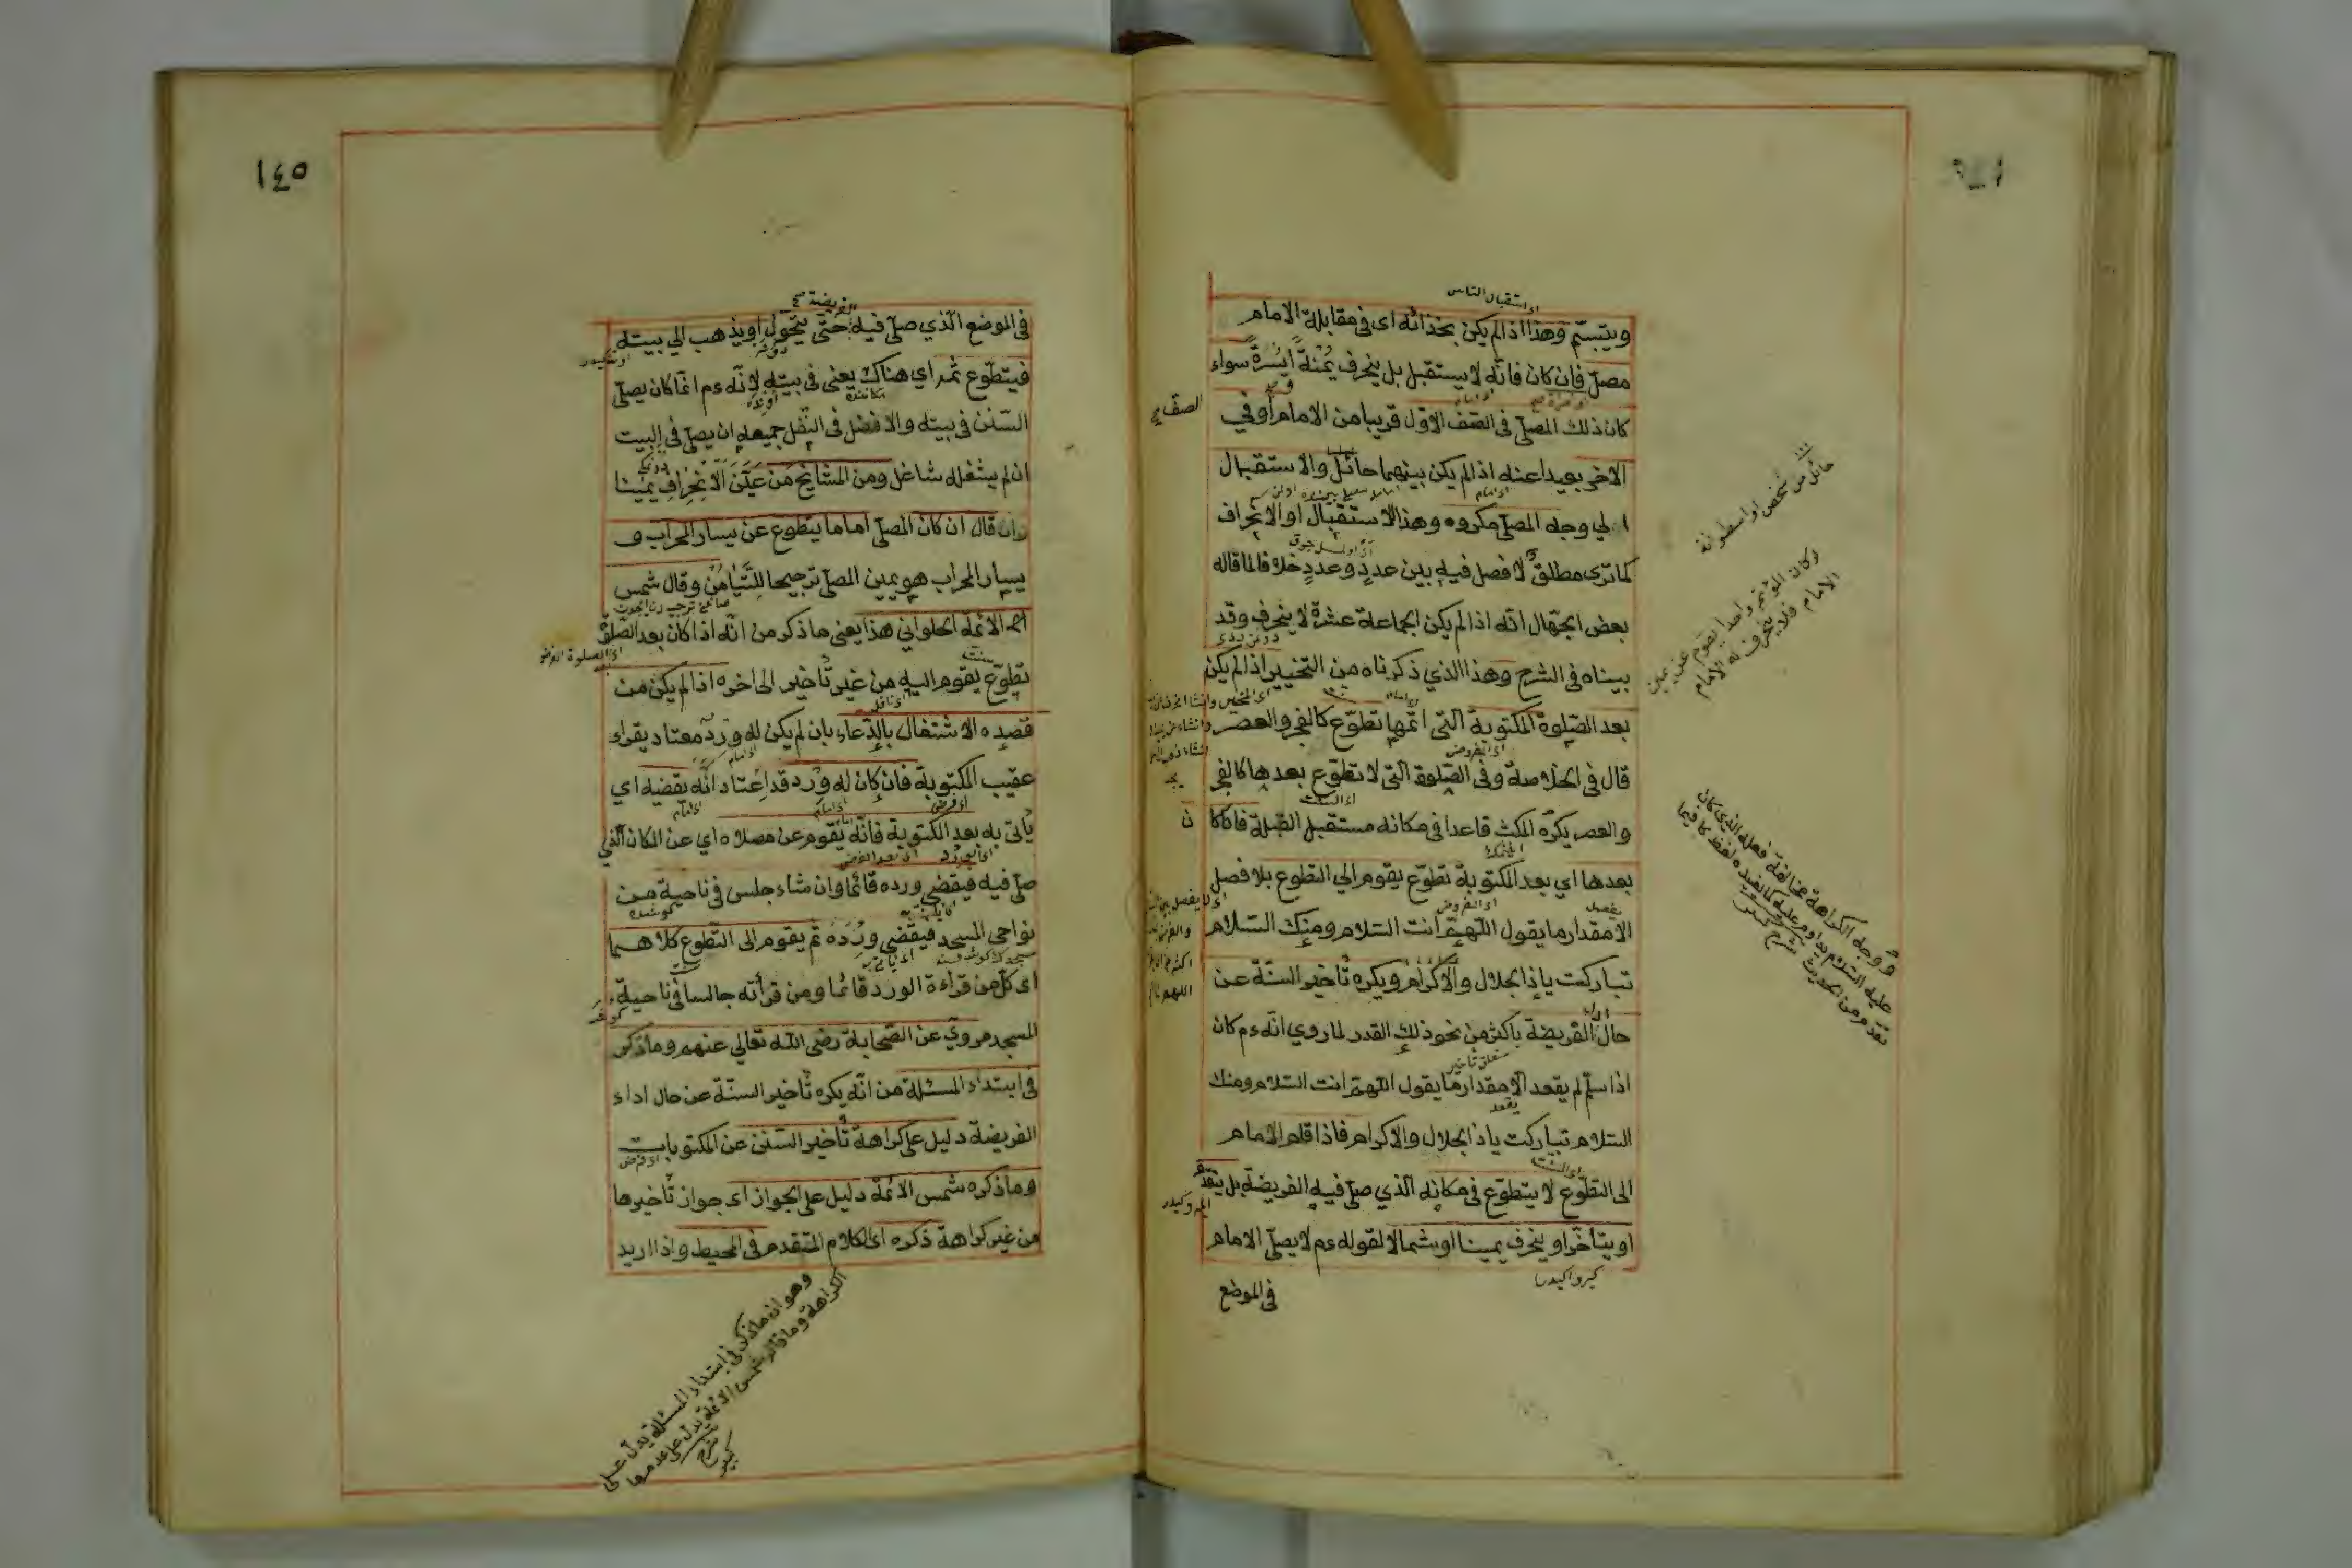 ويتبسّم وهذا اذا لم يكن بحذائه اى فى مقابلة الامام
مصلّ فان كان فانّه لا يستقبل بل ينحرف يُمْنةً ايسْرةً سواء
كان ذلك المصلّى فى الصّف الاوّل قريبا من الامام اوفي
الاخر بعيدا عنه اذا لم يكن بينهما حائل والاستقبال
الي وجه المصلّى مكروه وهذا الاستقبال او الانحراف
كما ترى مطلق لا فصل فيه بين عددٍ وعددٍ خلافا لما قاله
بعض الجهّال انّه اذا لم يكن الجماعة عشرة لا ينحرف وقد
بيناه فى الشرح وهذا الذي ذكرناه من التخيير اذا لم يكن
بعد الصّلوة المكتوبة الّتى اتمّها تطوّع كالفجر والعصر
قال فى الخلاصة وفى الصّلوة الّتى لا تطوّع بعدها كالفجر
والعصر يكره المكث قاعدا فى مكانه مستقبل القبلة فاكا
ن
بعدها اي بعد المكتوبة تطوّع يقوم الي التطوع بلا فصل
الا مقدار ما يقول اللّهمّ انت السّلام ومنك السّلام
تباركت ياذا الجلال والاكرام ويكره تأخير السنّة عن
حال الفريضة باكثر من نحو ذلك القدر لما روي انّه ءم كان
اذا سلّم لم يقعد الا مقدار ما يقول اللّهمّ انت السّلام ومنك
السّلام تباركت ياذا الجلال والاكرام فاذا قام الامام
الى التطوّع لا يتطوّع فى مكانه الّذي صلّى فيه الفريضة بل يتقدّم
او يتأخّر او ينحرف يمينا او شمالا لقوله ءم لا يصلّى الامام
فى الموضع
اى استقبال الناس
حائل من شخص او اسطوانة
لو كان المؤتم واحدا يقوم عن يمين
الامام فلا ينحرف له الامام
ووجه الكراهة مخالفة فعله الذى كان
عليه السّلام يداوم عليه كما يفيده لفظ كان فيما
تقدم من الحديث شرح كبير
١٤٥
فى الموضع الّذي صلّى فيه حتّى يتحوّل او يذهب الي بيته
فيتطوّع ثمّ اي هناك يعنى فى بيته لانّه ءم انّما كان يصلّى
السّنن فى بيته والافضل فى النّفل جميعه ان يصلّى فى البيت
ان لم يشغله شاغل ومن المشايخ مَن عَيّنَ الاِنْحِرافِ يمينا
وان قال ان كان المصلّى اماما يتطوّع عن يسار المحراب و
يسار المحراب هو يمين المصلّى ترجيحا للتّيامُن وقال شمس
الائمة الحلواني هذا يعنى ما ذكر من انّه اذا كان بعد الصّلوة
تطوّع يقوم اليه من غير تأخير الى اخره اذا لم يكن من
قصده الاشتغال بالدّعاء بان لم يكن له وردٌ معتاد يقراء
عقيب المكتوبة فان كان له وِرد قد اعتاد انّه يقضيه اي
يأتى به بعد المكتوبة فانّه يقوم عن مصلاه اي عن المكان الّذي
صلّى فيه فيقضى ورده قائما وان شاء جلس فى ناحية من
نواحى المسجد فيقضى وِرْدَهُ ثم يقوم الى التطوع كلاهما
اى كلّ من قراءة الورد قائما ومن قرأته جالسا فى ناحية
المسجد مرويّ عن الصّحابة رضى اللّه تعالي عنهم وما ذكر
فى ابتداء المسئلة من انّه يكره تأخير السنّة عن حال اداء
الفريضة دليل على كراهة تأخير السّنن عن المكتوبات
وما ذكره شمس الائمة دليل على الجواز اى جواز تأخيرها
من غير كراهة ذكره اى الكلام المتقدم فى المحيط واذا اريد
وهو ان ما ذكر فى ابتداء المسئلة يدل على
الكراهة وما قاله شمس الائمة يدل على عدمها
شرح
كبير